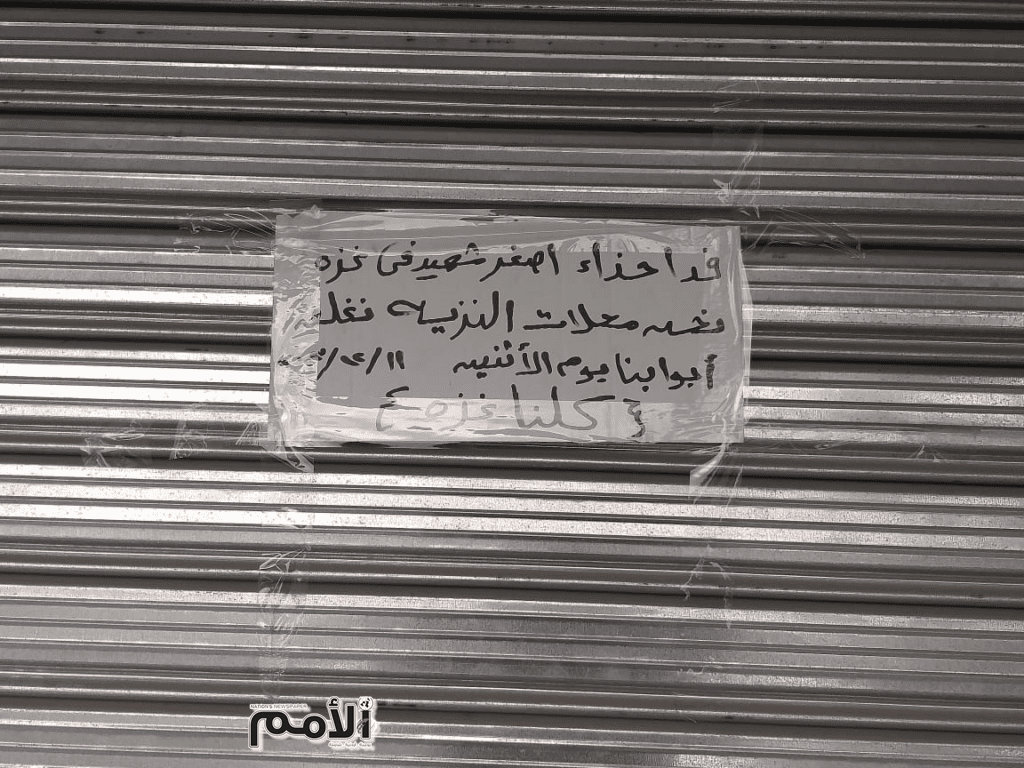 فدا حذاء أصغر شهيد في غزه
نحن محلات النزيه نغلق
أبوابنا يوم الأثنين ١١/١٢/
{ كلنا غزه }
الأمم
NATIONS NEWSPAPER